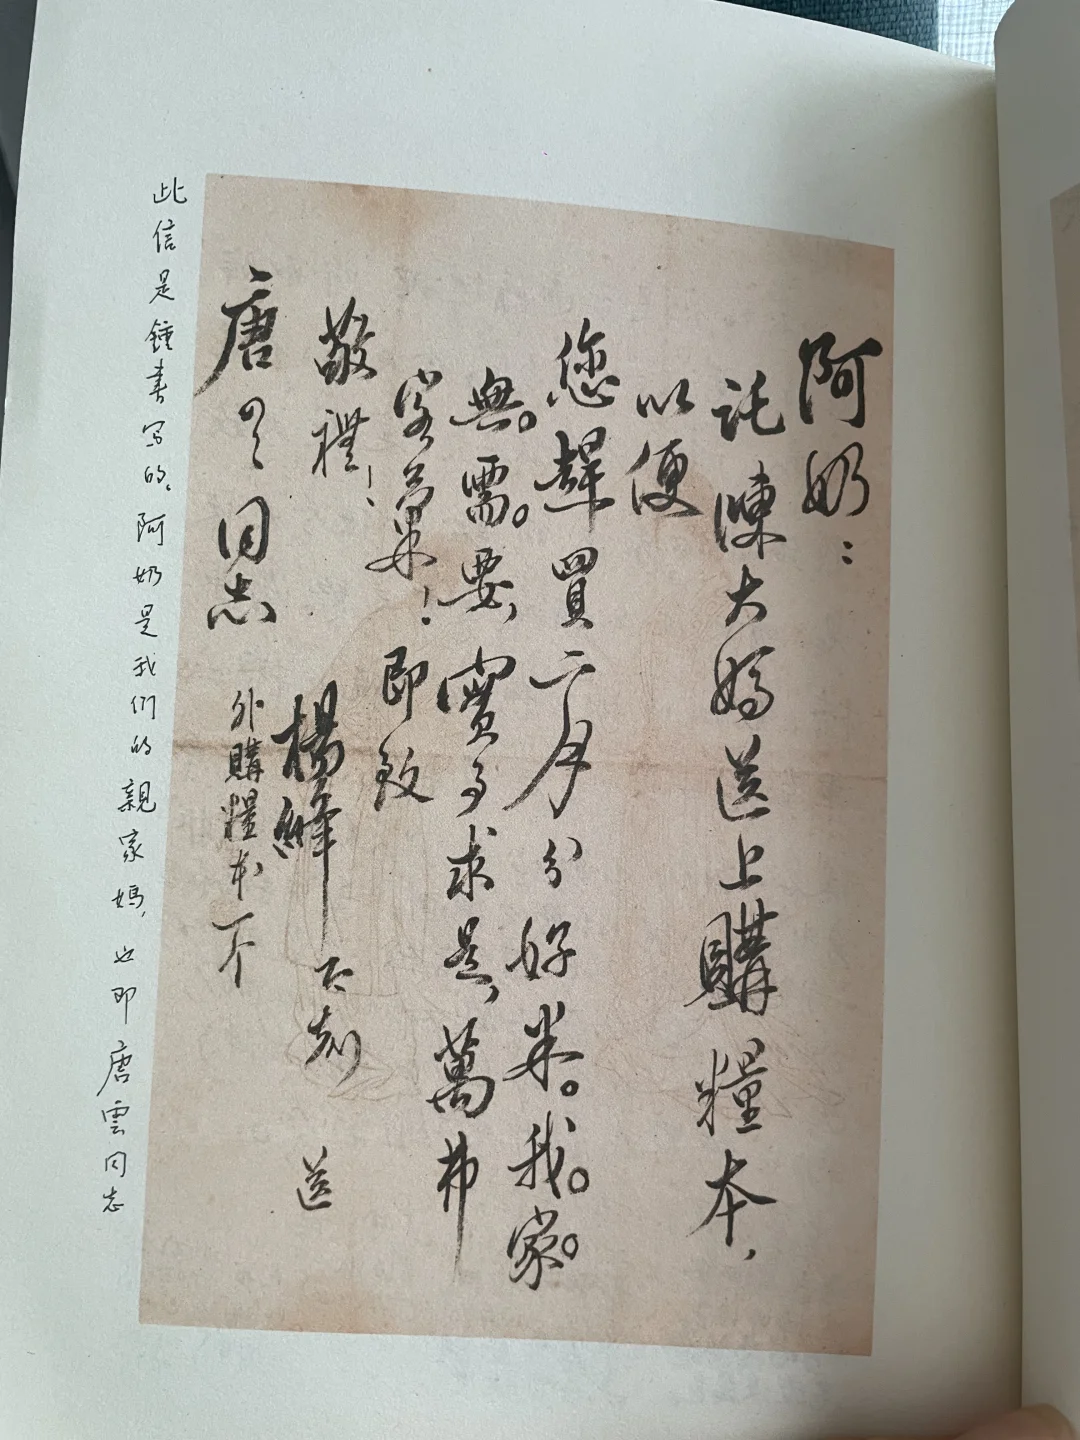 阿奶：
託陳大媽送上購糧本，
以便
您歸買二月分好米。我。家。
無。需。要，實事求是，萬弗
客氣！即致
敬禮！
楊絳 下刻 送
唐 同志
外購糧本一本
此信是鍾書写的。阿奶是我们的親家媽，也即唐雲同志